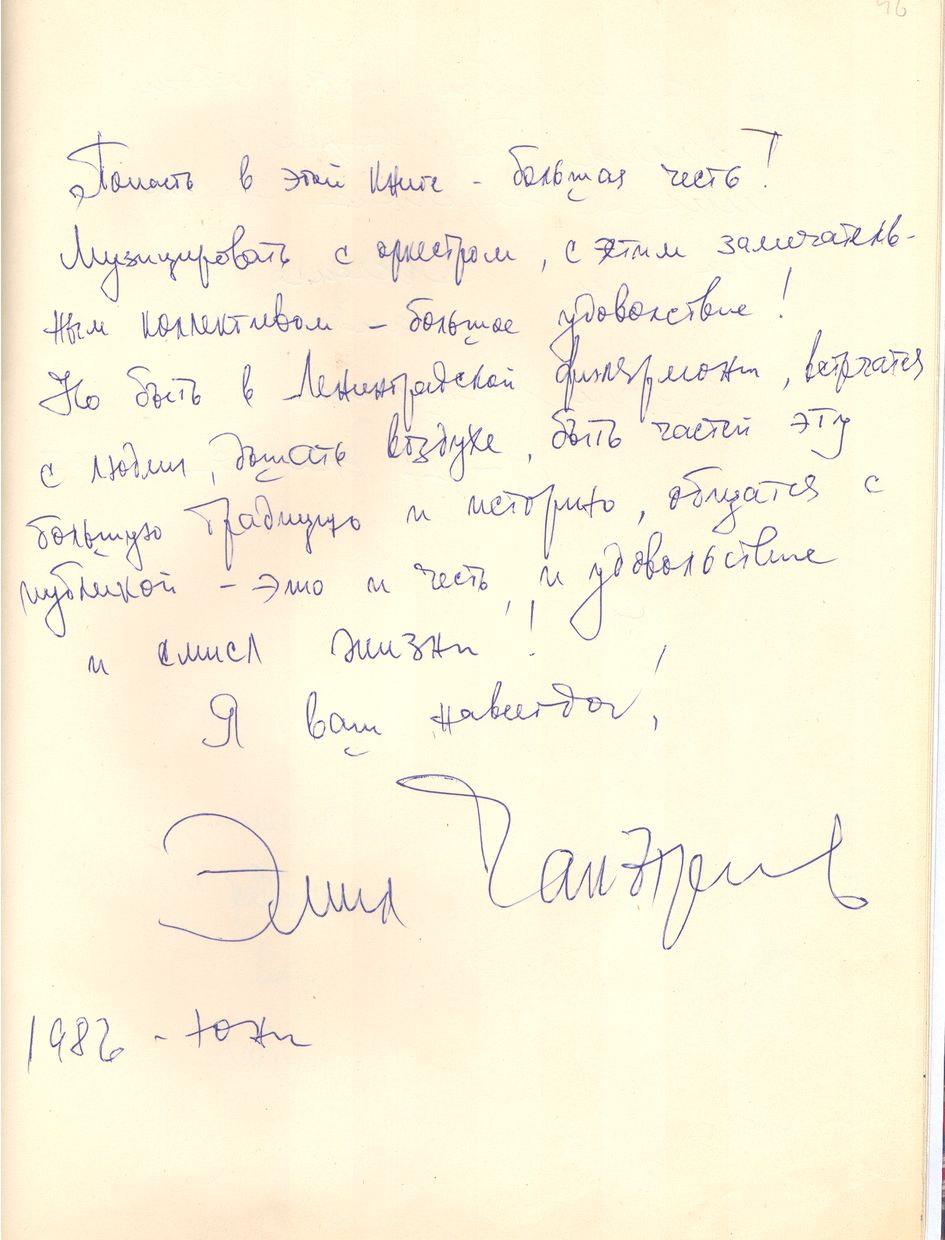 46
Попасть в этой книге - большая честь!
Музицировать с оркестром, с этим замечатель-
ным коллективом – большое удоволствие!
Но быть в Ленинградской филярмони, встрчатся
с людми, дышать воздухе, быть частей эту
большую традицую и историю, общатся с
публикой – это и честь, и удовольствие
и смисл жизни!
Я ваш навсегда!
Эмил
1986 - юни